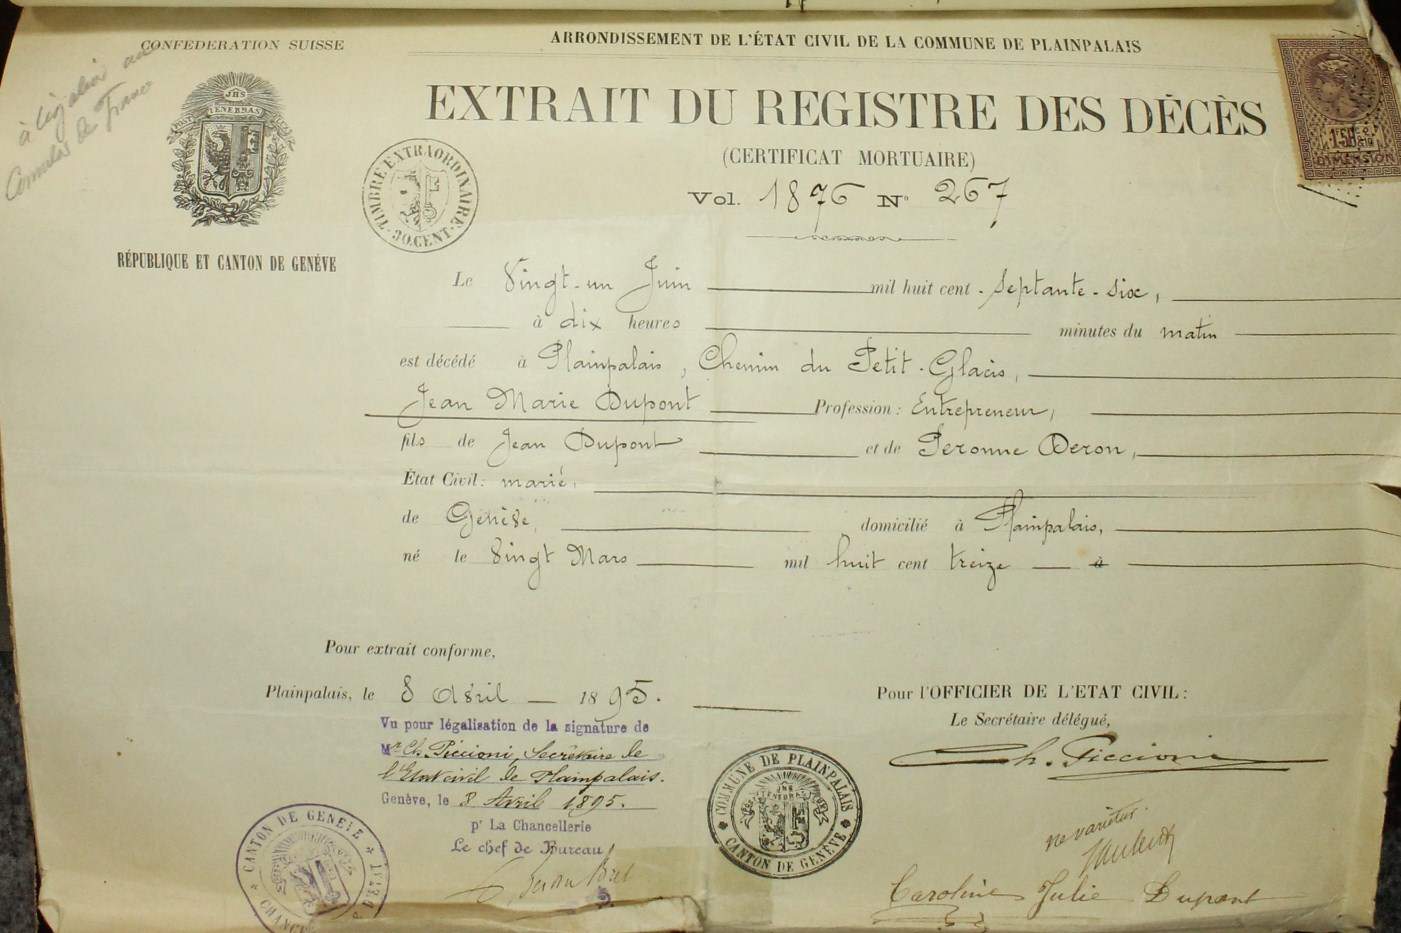 CONFEDERATION SUISSE
ARRONDISSEMENT DE L'ÉTAT CIVIL DE LA COMMUNE DE PLAINPALAIS
à légaliser au
Consulat de France
JHS
TENEBRAS
RÉPUBLIQUE ET CANTON DE GENÈVE
TIMBRE EXTRAORDINAIRE
30 CENT.
EXTRAIT DU REGISTRE DES DÉCÈS
DIMENSION
(CERTIFICAT MORTUAIRE)
Vol. 1876 N° 267
Le Vingt-un Juin mil huit cent septante-six,
à dix heures minutes du matin
est décédé à Plainpalais, Chemin du Petit-Glacis,
Jean Marie Dupont Profession: Entrepreneur,
fils de Jean Dupont et de Peronne Deron,
État Civil: marié,
de Genève, domicilié à Plainpalais,
né le Vingt Mars mil huit cent treize à
Pour extrait conforme,
Plainpalais, le 8 Avril 1895.
Pour l'OFFICIER DE L'ETAT CIVIL:
Le Secrétaire délégué,
Ch. Piccioni
Vu pour légalisation de la signature de
Mr Ch. Piccioni, Secrétaire de
l'Etat civil de Plainpalais.
Genève, le 8 Avril 1895.
pr La Chancellerie
Le chef de Bureau
CANTON DE GENÈVE
COMMUNE DE PLAINPALAIS
CANTON DE GENÈVE
ne varietur
Caroline Julie Dupont